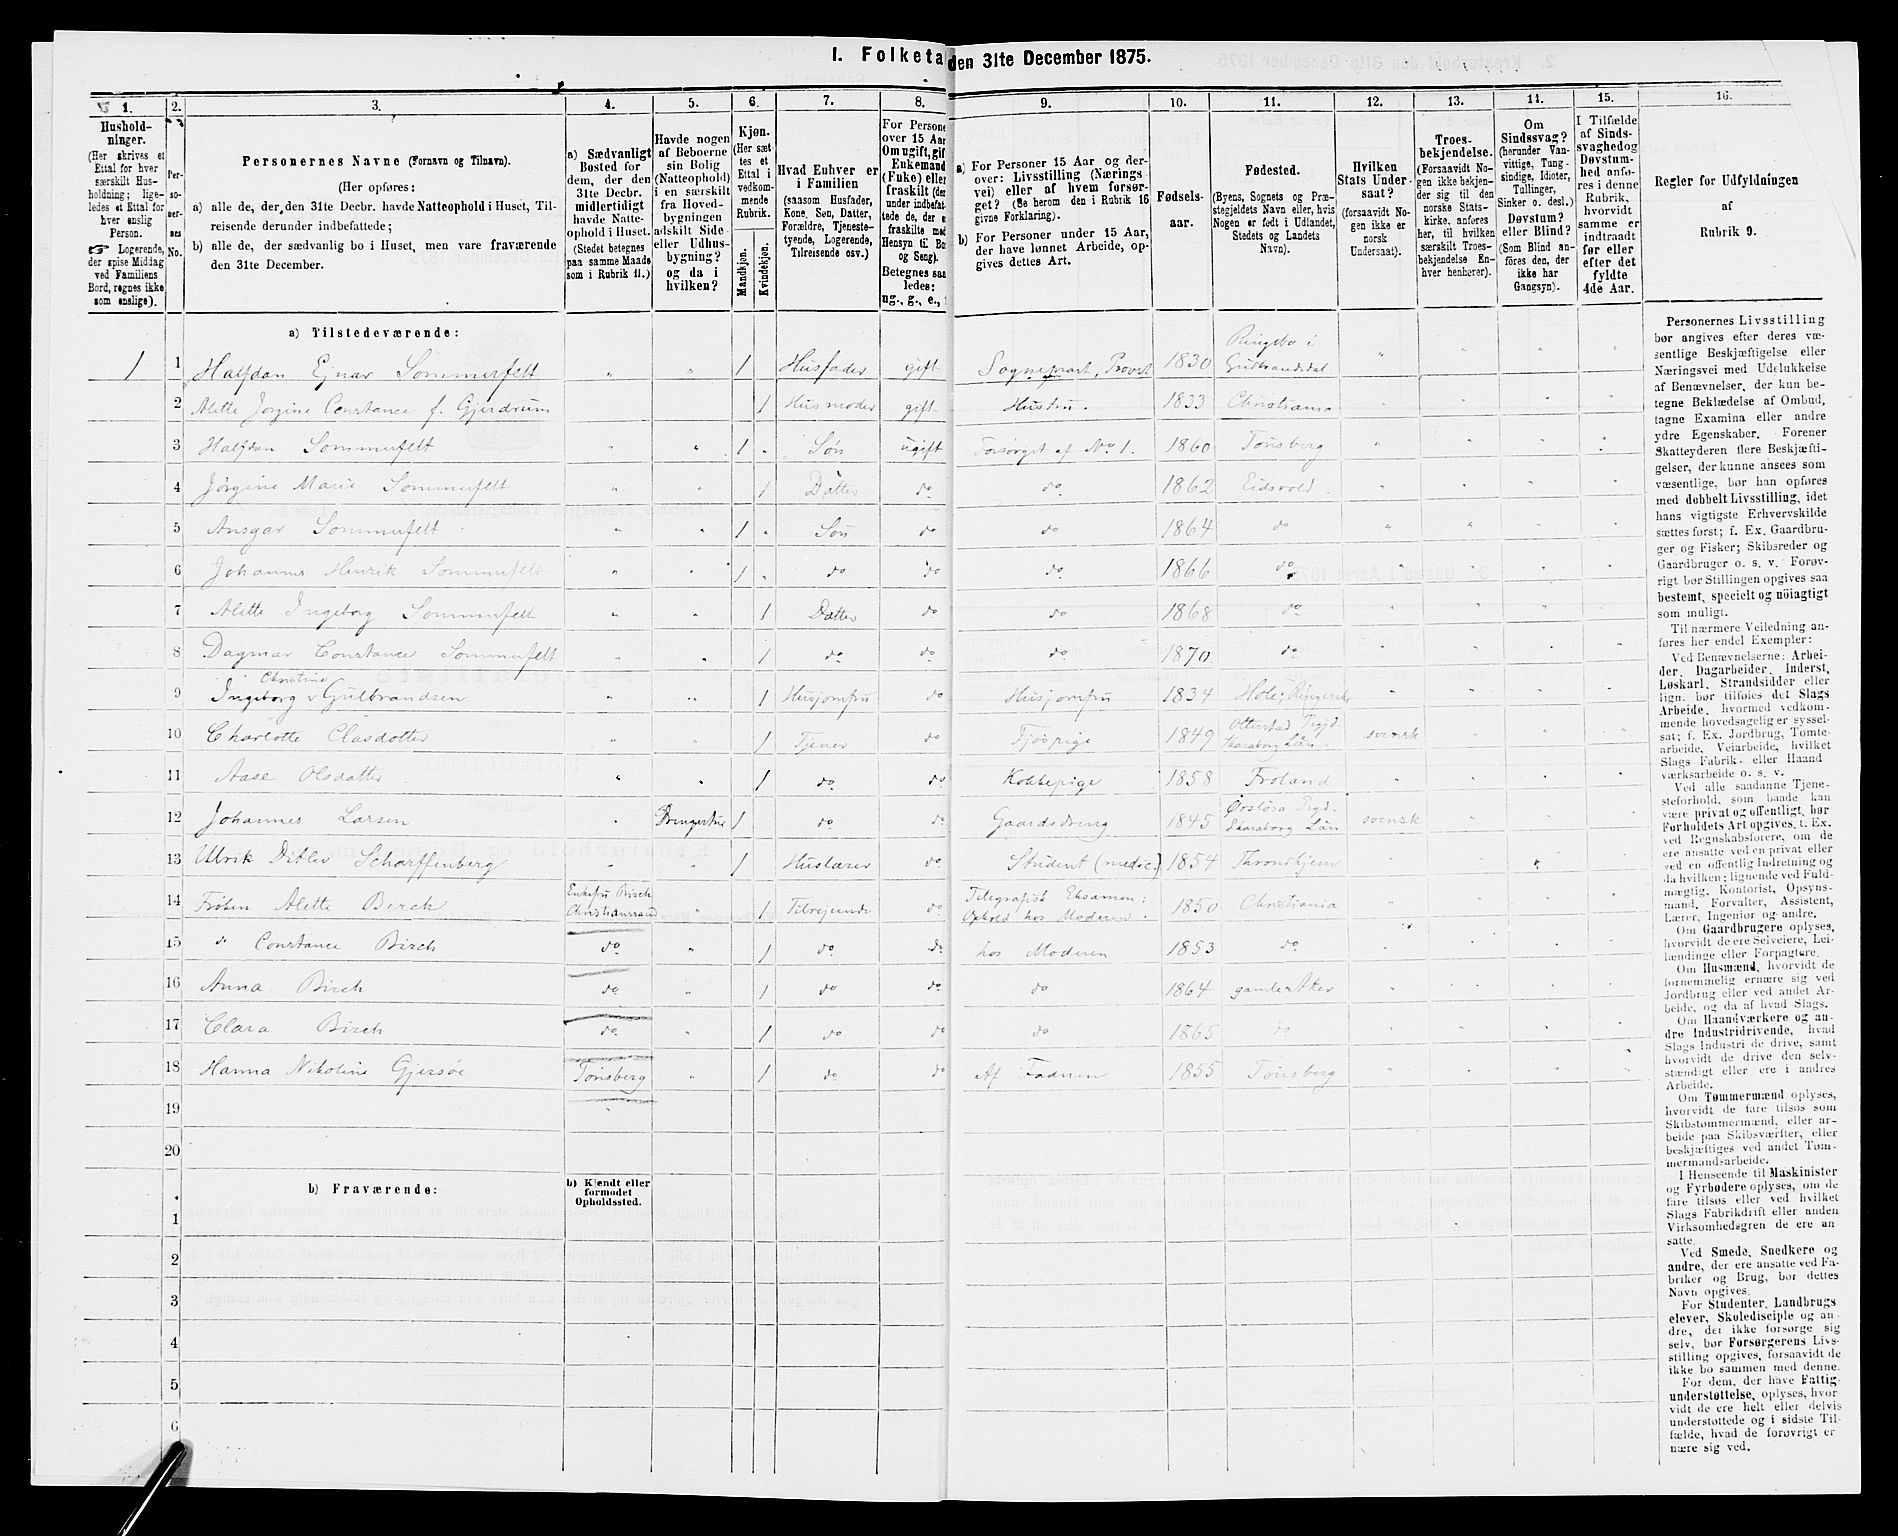 I. Folketa den 31te December 1875.
1. 2. 3. 4. 5. 6. 7. 8. 9. 10. 11. 12. 13. 14. 15. 16.
Hushold-
ninger.
(Her skrives et
Ettal for hver
særskilt Hus-
holdning; lige-
ledes et Ettal for
hver enslig
Person.
☞ Logerende,
der spise Middag
ved Familiens
Bord, regnes ikke
som enslige).
Per-
so-
ner-
nes
No.
Personernes Navne (Fornavn og Tilnavn).
(Her opføres:
a) alle de, der den 31te Decbr. havde Natteophold i Huset, Til-
reisende derunder indbefattede;
b) alle de, der sædvanlig bo i Huset, men vare fraværende
den 31te December.
a) Sædvanligt
Bosted for
dem, der den
31te Decbr.
midlertidigt
havde Natte-
ophold i Huset.
(Stedet betegnes
paa samme Maade
som i Rubrik 11.)
Havde nogen
af Beboerne
sin Bolig
(Natteophold)
i en særskilt
fra Hoved-
bygningen
adskilt Side-
eller Udhus-
bygning?
og da i
hvilken?
Kjøn.
(Her sæt-
tes et
Ettal i
vedkom-
mende
Rubrik.
Mandkjøn.
Kvindekjøn.
Hvad Enhver er
i Familien
(saasom Husfader,
Kone, Søn, Datter,
Forældre, Tjeneste-
tyende, Logerende,
Tilreisende osv.)
For Persone
over 15 Aar
Om ugift, gif
Enkemand
(Enke) eller
fraskilt (der
under indbefat-
tede de, der e
fraskilte med
Hensyn til Bo
og Seng).
Betegnes saa
ledes:
ug., g., e.,
a) For Personer 15 Aar og der-
over: Livsstilling (Nærings-
vei) eller af hvem forsør-
get? (Se herom den i Rubrik 16
givne Forklaring).
b) For Personer under 15 Aar,
der have lønnet Arbeide, op-
gives dettes Art.
Fødsels-
aar.
Fødested.
(Byens, Sognets og Præ-
stegjeldets Navn eller, hvis
Nogen er født i Udlandet,
Stedets og Landets
Navn).
Hvilken
Stats Under-
saat?
(forsaavidt No-
gen ikke er
norsk
Undersaat).
Troes-
bekjendelse.
(Forsaavidt No-
gen ikke bekjen-
der sig til den
norske Stats-
kirke, anføres
her, til hvilken
særskilt Troes-
bekjendelse En-
hver henhører).
Om
Sindssvag?
(herunder Van-
vittige, Tung-
sindige, Idioter,
Tullinger,
Sinker o. desl.)
Døvstum?
eller Blind?
(Som Blind an-
føres den, der
ikke har
Gangsyn).
I Tilfælde
af Sinds-
svaghed og
Døvstum-
hed anfø-
res i denne
Rubrik,
hvorvidt
samme er
indtraadt
før eller
efter det
fyldte
4de Aar.
Regler for Udfyldningen
af
Rubrik 9.
a) Tilstedeværende:
1 1 Halfdan Ejnar Sommerfelt " " 1 Husfader gift Sognepræst, Provst 1830 Ringebo i Gudbrandsdal " " " "
2 Alette Jørgine Constance f. Gjerdrum 1 Husmoder gift Hustru. 1833 Christiania " " " "
3 Halfdan Sommerfelt " " 1 Søn ugift Forsørget af No 1. 1860 Tønsberg " " " "
4 Jørgine Marie Sommerfelt " " 1 Datter do do 1862 Eidsvold. " " " "
5 Ansgar Sommerfelt " " 1 Søn do do 1864 do " " " "
6 Johannes Henrik Sommerfelt " " 1 do do do 1866 do " " " "
7 Alette Ingeborg Sommerfelt " " 1 Datter do do 1868 do " " " "
8 Dagmar Constance Sommerfelt " " 1 do do do 1870 do " " " "
9 Ingeborg Christine Gulbrandsen " " 1 Husjomfru do Husjomfru 1834 Hole, Ringerik " " " "
10 Charlotte Clasdotter " " 1 Tjener do 1849 Otterstad Prgjd. Skaraborg Län. svensk " " "
11 Aase Olsdatter " " 1 do do Kokkepige 1858 Froland " " " "
12 Johannes Larsen " Drengestue 1 do do Gaardsdreng 1845 Prgd. Skaraborg Län svensk " " "
13 Ulrik Ditlev Scharffenberg " 1 Huslærer do Student (medic.) 1854 Throndhjem " " " "
14 Frøken Alette Birch Enkefru Birch Christianssand " 1 Tilrejsende do Telegrafist Eksamen; Ophold hos Moderen. 1850 Christiania " " " "
15 do Constance Birch do " 1 do do hos Moderen 1853 do " " " "
16 Anna Birch do " 1 do do do 1864 gamle Aker " " " "
17 Clara Birch do " 1 do do do 1865 do " " " "
18 Hanna Nikoline Gjersøe Tønsberg " 1 do do Af Faderen 1855 Tønsberg " " " "
19
20
b) Fraværende:
b) Kjendt eller
formodet
Opholdssted.
1
2
3
4
5
6
Personernes Livsstilling
bør angives efter deres væ-
sentlige Beskjæftigelse eller
Næringsvei med Udelukkelse
af Benævnelser, der kun be-
tegne Beklædelse af Ombud,
tagne Examina eller andre
ydre Egenskaber. Forener
Skatteyderen flere Beskjæfti-
gelser, der kunne ansees som
væsentlige, bør han opføres
med dobbelt Livsstilling, idet
hans vigtigste Erhvervskilde
sættes først; f. Ex. Gaardbru-
ger og Fisker; Skibsreder og
Gaardbruger o. s. v. Forøv-
rigt bør Stillingen opgives saa
bestemt, specielt og nøiagtigt
som muligt.
Til nærmere Veiledning an-
føres her endel Exempler:
Ved Benævnelserne: Arbei-
der, Dagarbeider, Inderst,
Løskarl, Strandsidder eller
lign. bør tilføies det Slags
Arbeide, hvormed vedkom-
mende hovedsagelig er syssel-
sat; f. Ex. Jordbrug, Tomte-
arbeide, Veiarbeide, hvilket
Slags Fabrik- eller Haand
værksarbeide o. s. v.
Ved alle saadanne Tjene-
steforhold, som baade kan
være privat og offentligt, bør
Forholdets Art opgives, t. Ex.
ved Regnskabsførere, om de
ere ansatte ved en privat eller
ved en offentlig Indretning og
da hvilken; lignende ved Fuld-
mægtig, Kontorist, Opsyns-
mand, Forvalter, Assistent,
Lærer, Ingeniør og andre.
Om Gaardbrugere oplyses,
hvorvidt de ere Selveiere, Lei-
lændinge eller Forpagtere.
Om Husmænd, hvorvidt de
fornemmelig ernære sig ved
Jordbrug eller ved andet Ar-
beide, og da af hvad Slags.
Om Haandværkere og an-
dre Industridrivende, hvad
Slags Industri de drive, samt
hvorvidt de drive den selv-
stændigt eller ere i andres
Arbeide.
Om Tømmermænd oplyses,
hvorvidt de fare tilsøs som
Skibstømmermænd, eller ar-
beide paa Skibsværfter, eller
beskjæftiges ved andet Tøm-
mermandsarbeide.
I Henseende til Maskinister
og Fyrbødere oplyses, om de
fare tilsøs eller ved hvilket
Slags Fabrikdrift eller anden
Virksomhedsgren de ere an-
satte.
Ved Smede, Snedkere og
andre, der ere ansatte ved Fa-
briker og Brug, bør dettes
Navn opgives.
For Studenter, Landbrugs
elever, Skoledisciple og an-
dre, der ikke forsørge sig
selv, bør Forsørgerens Livs-
stilling opgives, forsaavidt de
ikke bo sammen med denne.
For dem, der have Fattig-
understøttelse, oplyses, hvor-
vidt de ere helt eller delvis
understøttede og i sidste Til-
fælde, hvad de forøvrigt er
nære sig ved.